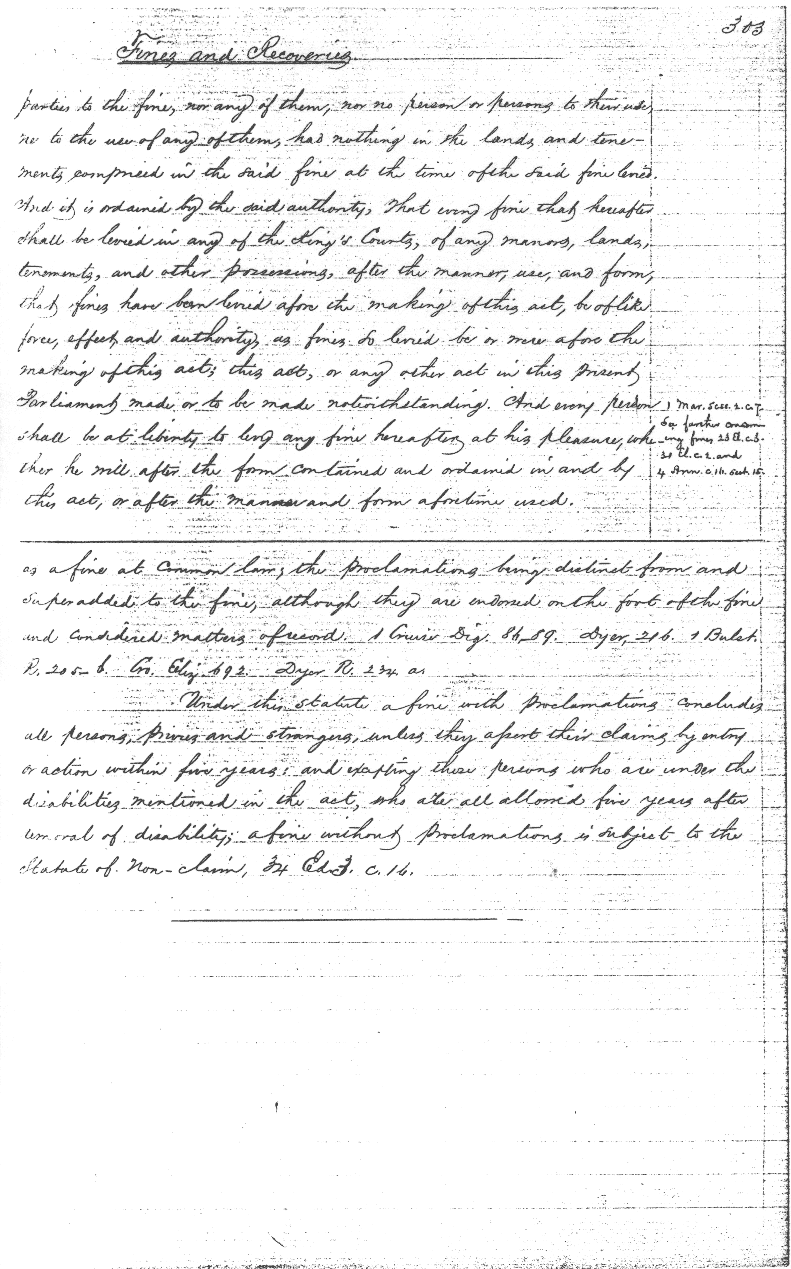 303
Fines and Recoveries
parties to the fine, nor any of them, nor no person or persons to their use,
ne to the use of any of them, had nothing in the lands and tene-
ments comprised in the said fine at the time of the said fine levied.
And it is ordained by the said authority, That every fine that hereafter
shall be levied in any of the King's Courts, of any manors, lands,
tenements, and other possessions, after the manner, use, and form,
that fines have been levied afore the making of this act, be of like
force, effect and authority, as fines so levied be or were afore the
making of this act; this act, or any other act in this present
Parliament made or to be made notwithstanding. And every person
shall be at liberty to levy any fine hereafter, at his pleasure, whe-
ther he will after the form contained and ordained in and by
this act, or after the manner and form aforetime used.
1 Mar. Sess. 2. c. 7.
See further concern
-ing fines 23 El. c. 3.
31 El. c. 2. and
4 Ann. c. 16. Sect. 15.
as a fine at Common law; the proclamations being distinct from and
superadded to the fine, although they are endorsed on the foot of the fine
and considered matters of record. 1 Cruise Dig. 86, 89. Dyer, 216. 1 Bulst.
R. 205-6. Cro. Eliz. 692. Dyer R. 234. a.
Under this statute a fine with proclamations concludes
all persons, privies and strangers, unless they assert their claims by entry
or action within five years; and excepting those persons who are under the
disabilities mentioned in the act, who are all allowed five years after
removal of disability; a fine without proclamations is subject to the
Statute of Non-claim, 34 Ed. 3. c. 16.